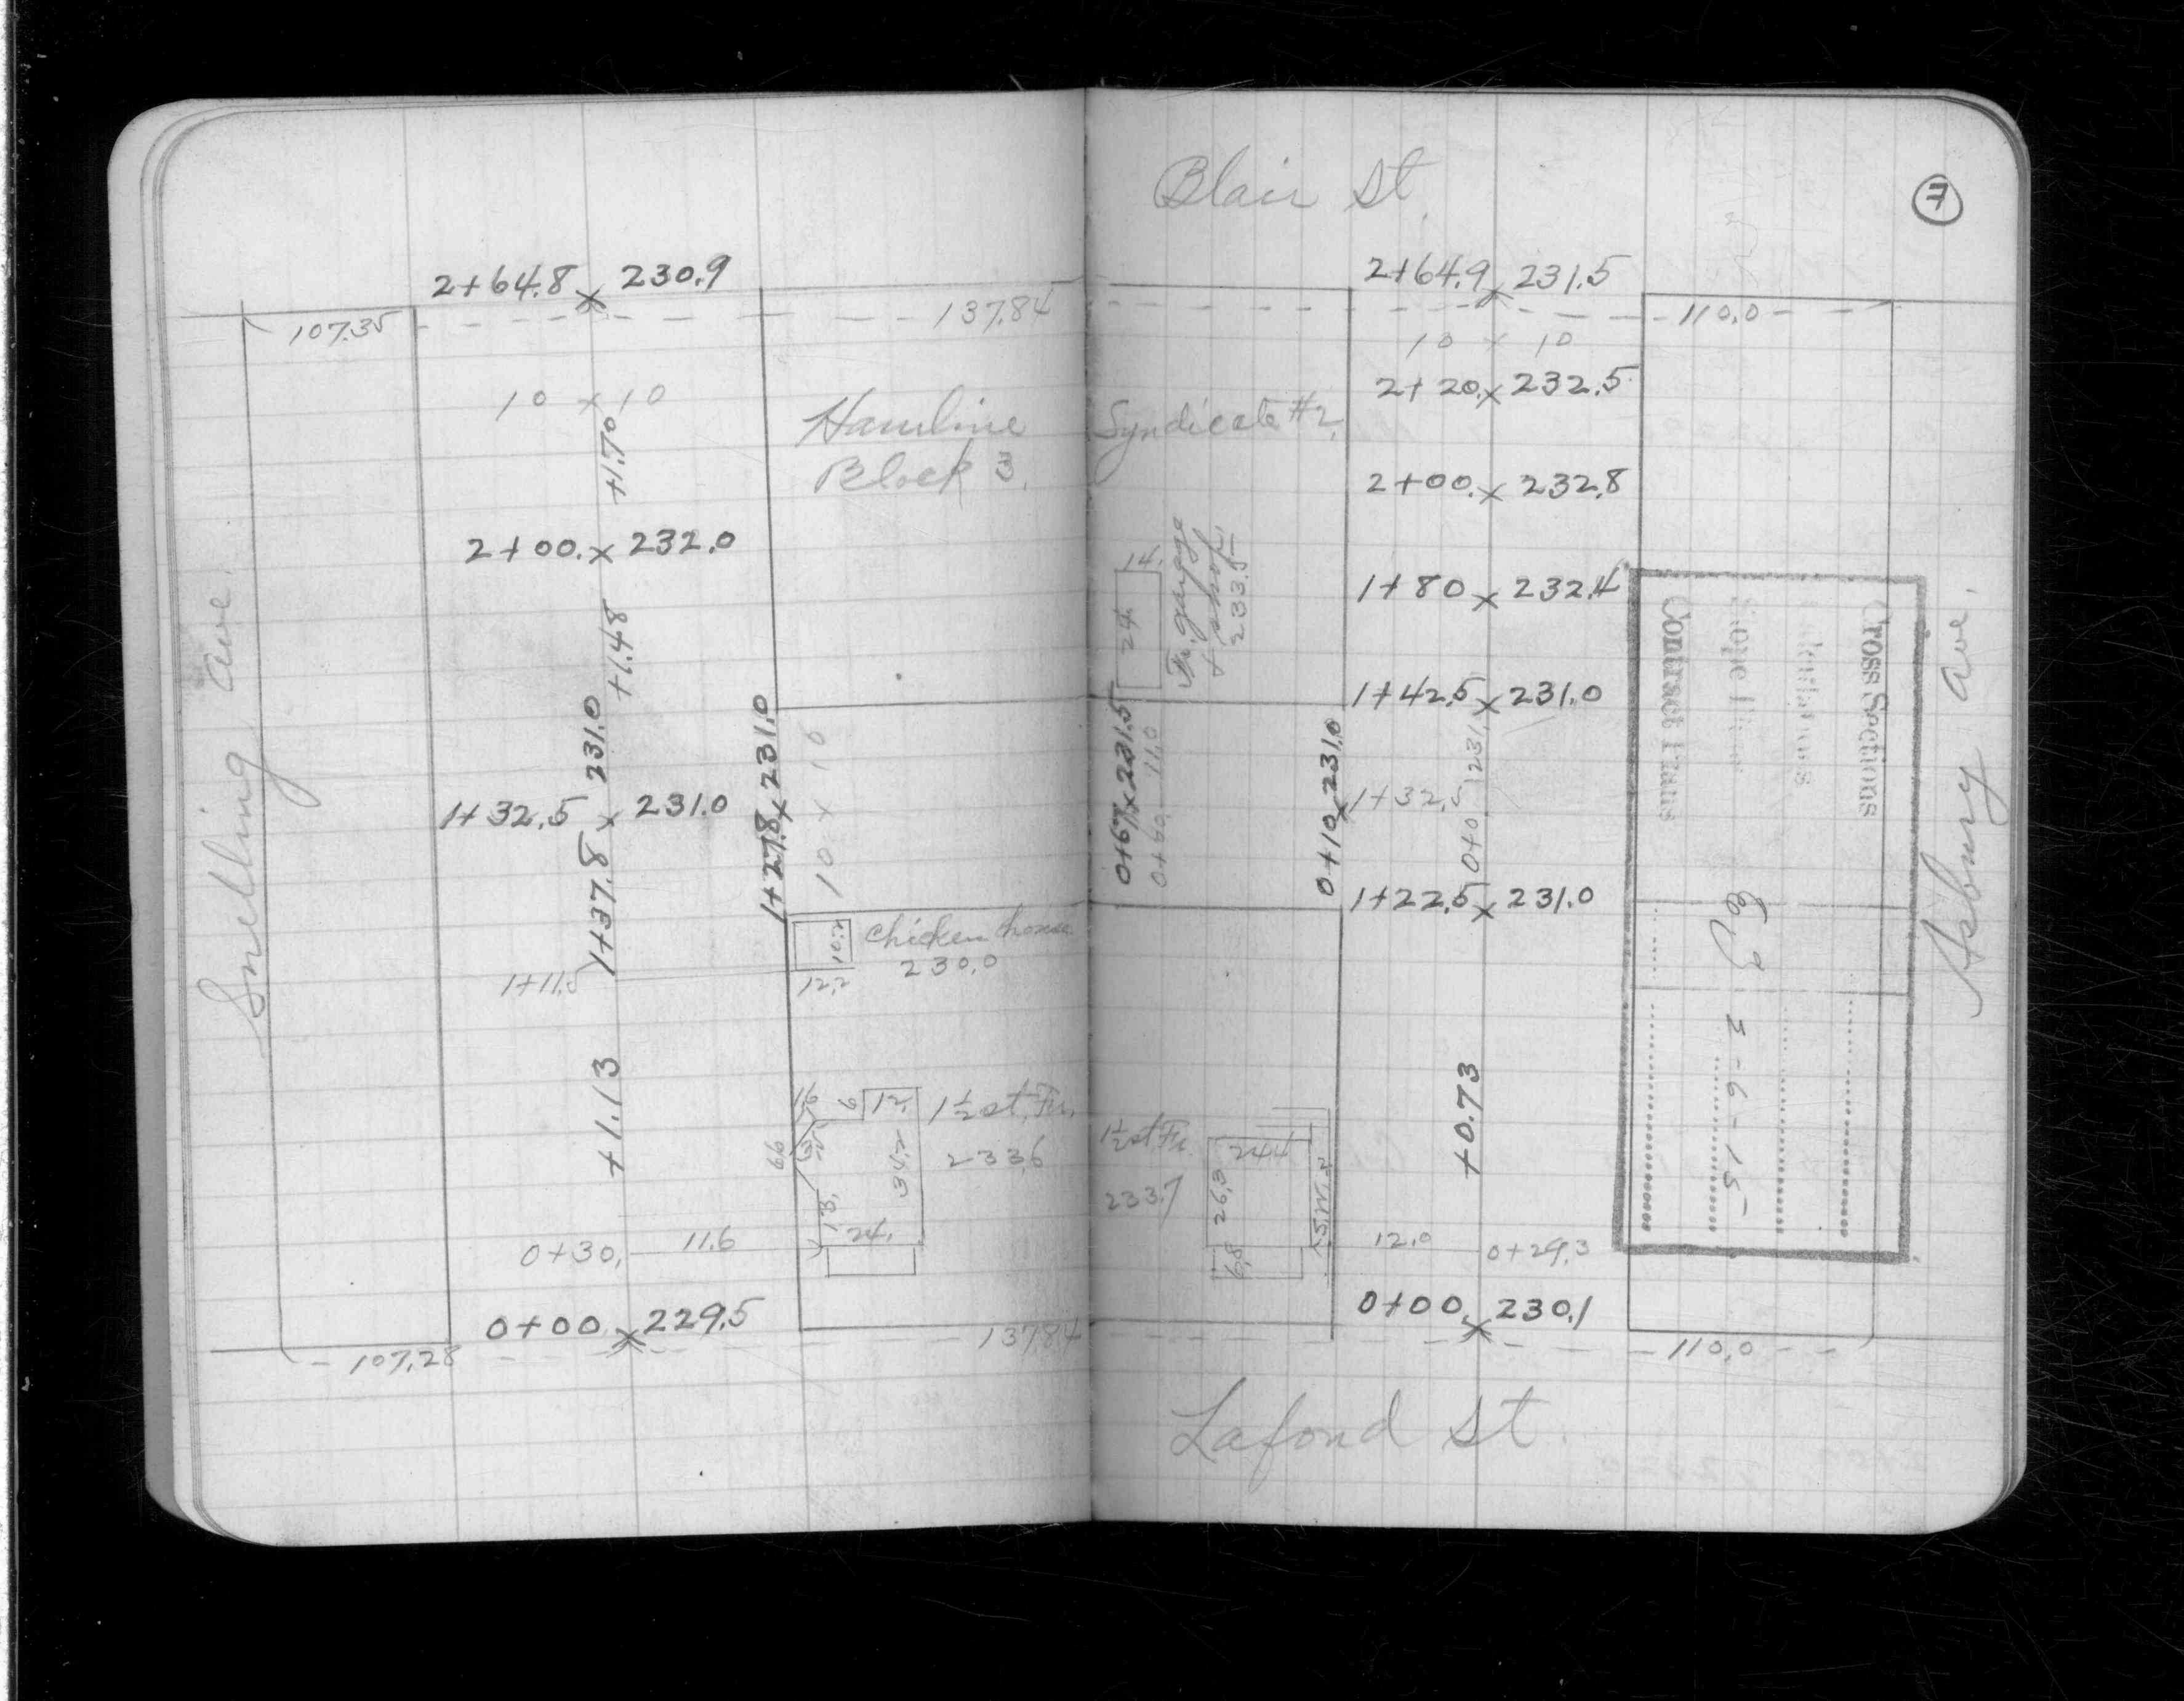 Blair St.
7
2+64.8 x 230.9
2+64.9 x 231.5
107.35
137.84
110.0
10 x 10
10 x 10
2+20. x 232.5
+1.70
Hamline
Syndicate #2.
Block 3.
2+00. x 232.8
2+00. x 232.0
14.
24.
Fr. garage
+ shop,
233.5
1+80 x 232.4
+1.48
1+42.5 x 231.0
Snelling Ave.
1+37.8 231.0
1+32.5 x 231.0
1+27.8 x 231.0
10 x 10
0+67 x 231.5
0+60 11.0
0+10 x 231.0
1+32.5
0+0 231.
1+22.5 x 231.0
10.2
Chicken house
230.0
12.2
1+11.5
Cross Sections
Slope Lines
Contract Plans
3-6-15
Asbury Ave.
+1.13
+0.73
16
6
12.
1½ st. Fr.
233.6
34.2
13.
24.
1½ st. Fr.
233.7
24.4
26.3
6.8
0+30, 11.6
12.0 0+29.3
0+00. x 229.5
0+00. x 230.1
107.28
137.84
110.0
Lafond St.